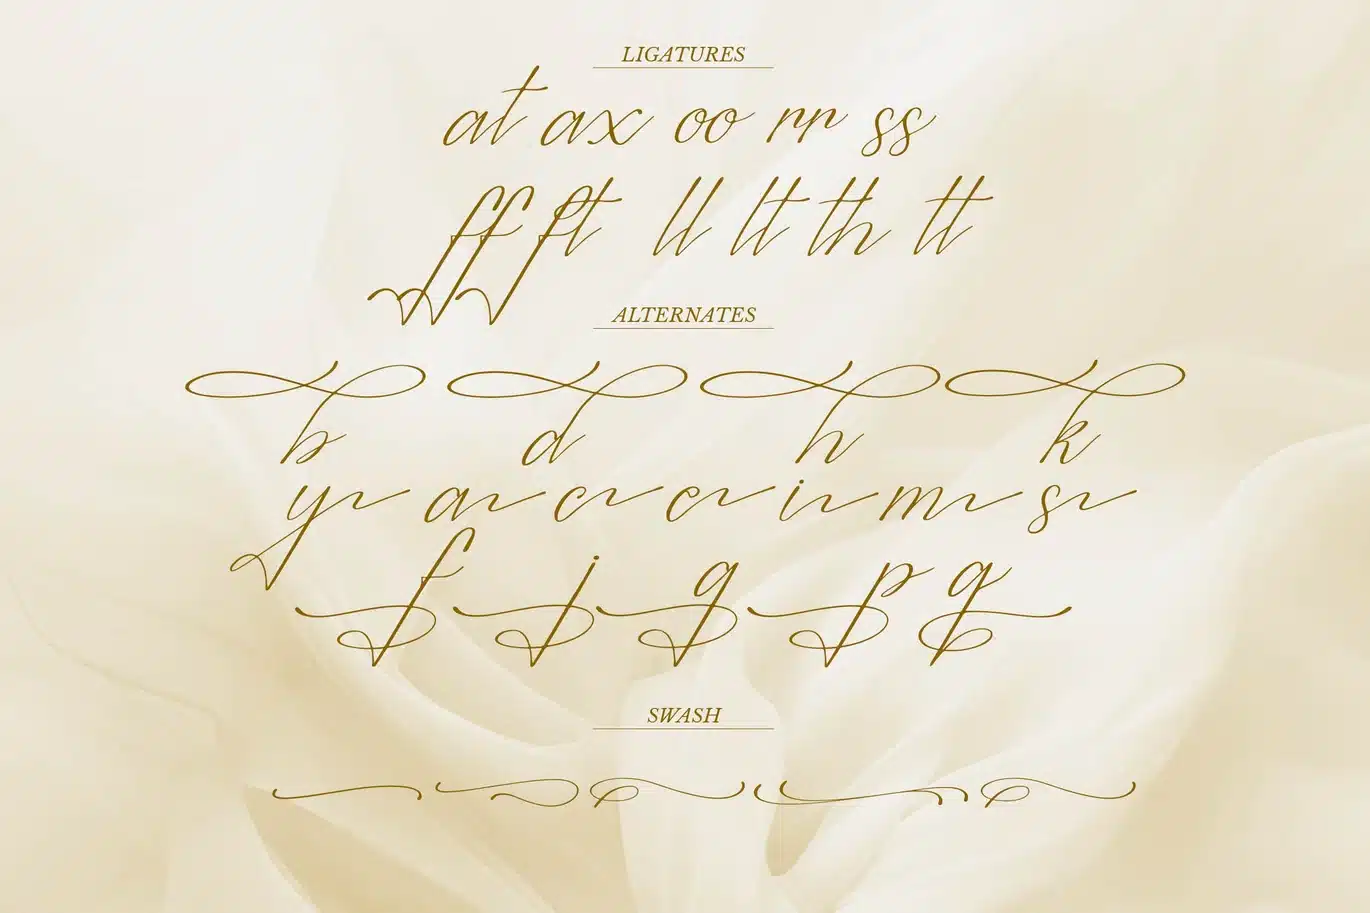 LIGATURES
at ax oo rr ss
ff ft ll lt th tt
ALTERNATES
b d h k
y a c e i m s
f j g p q
SWASH